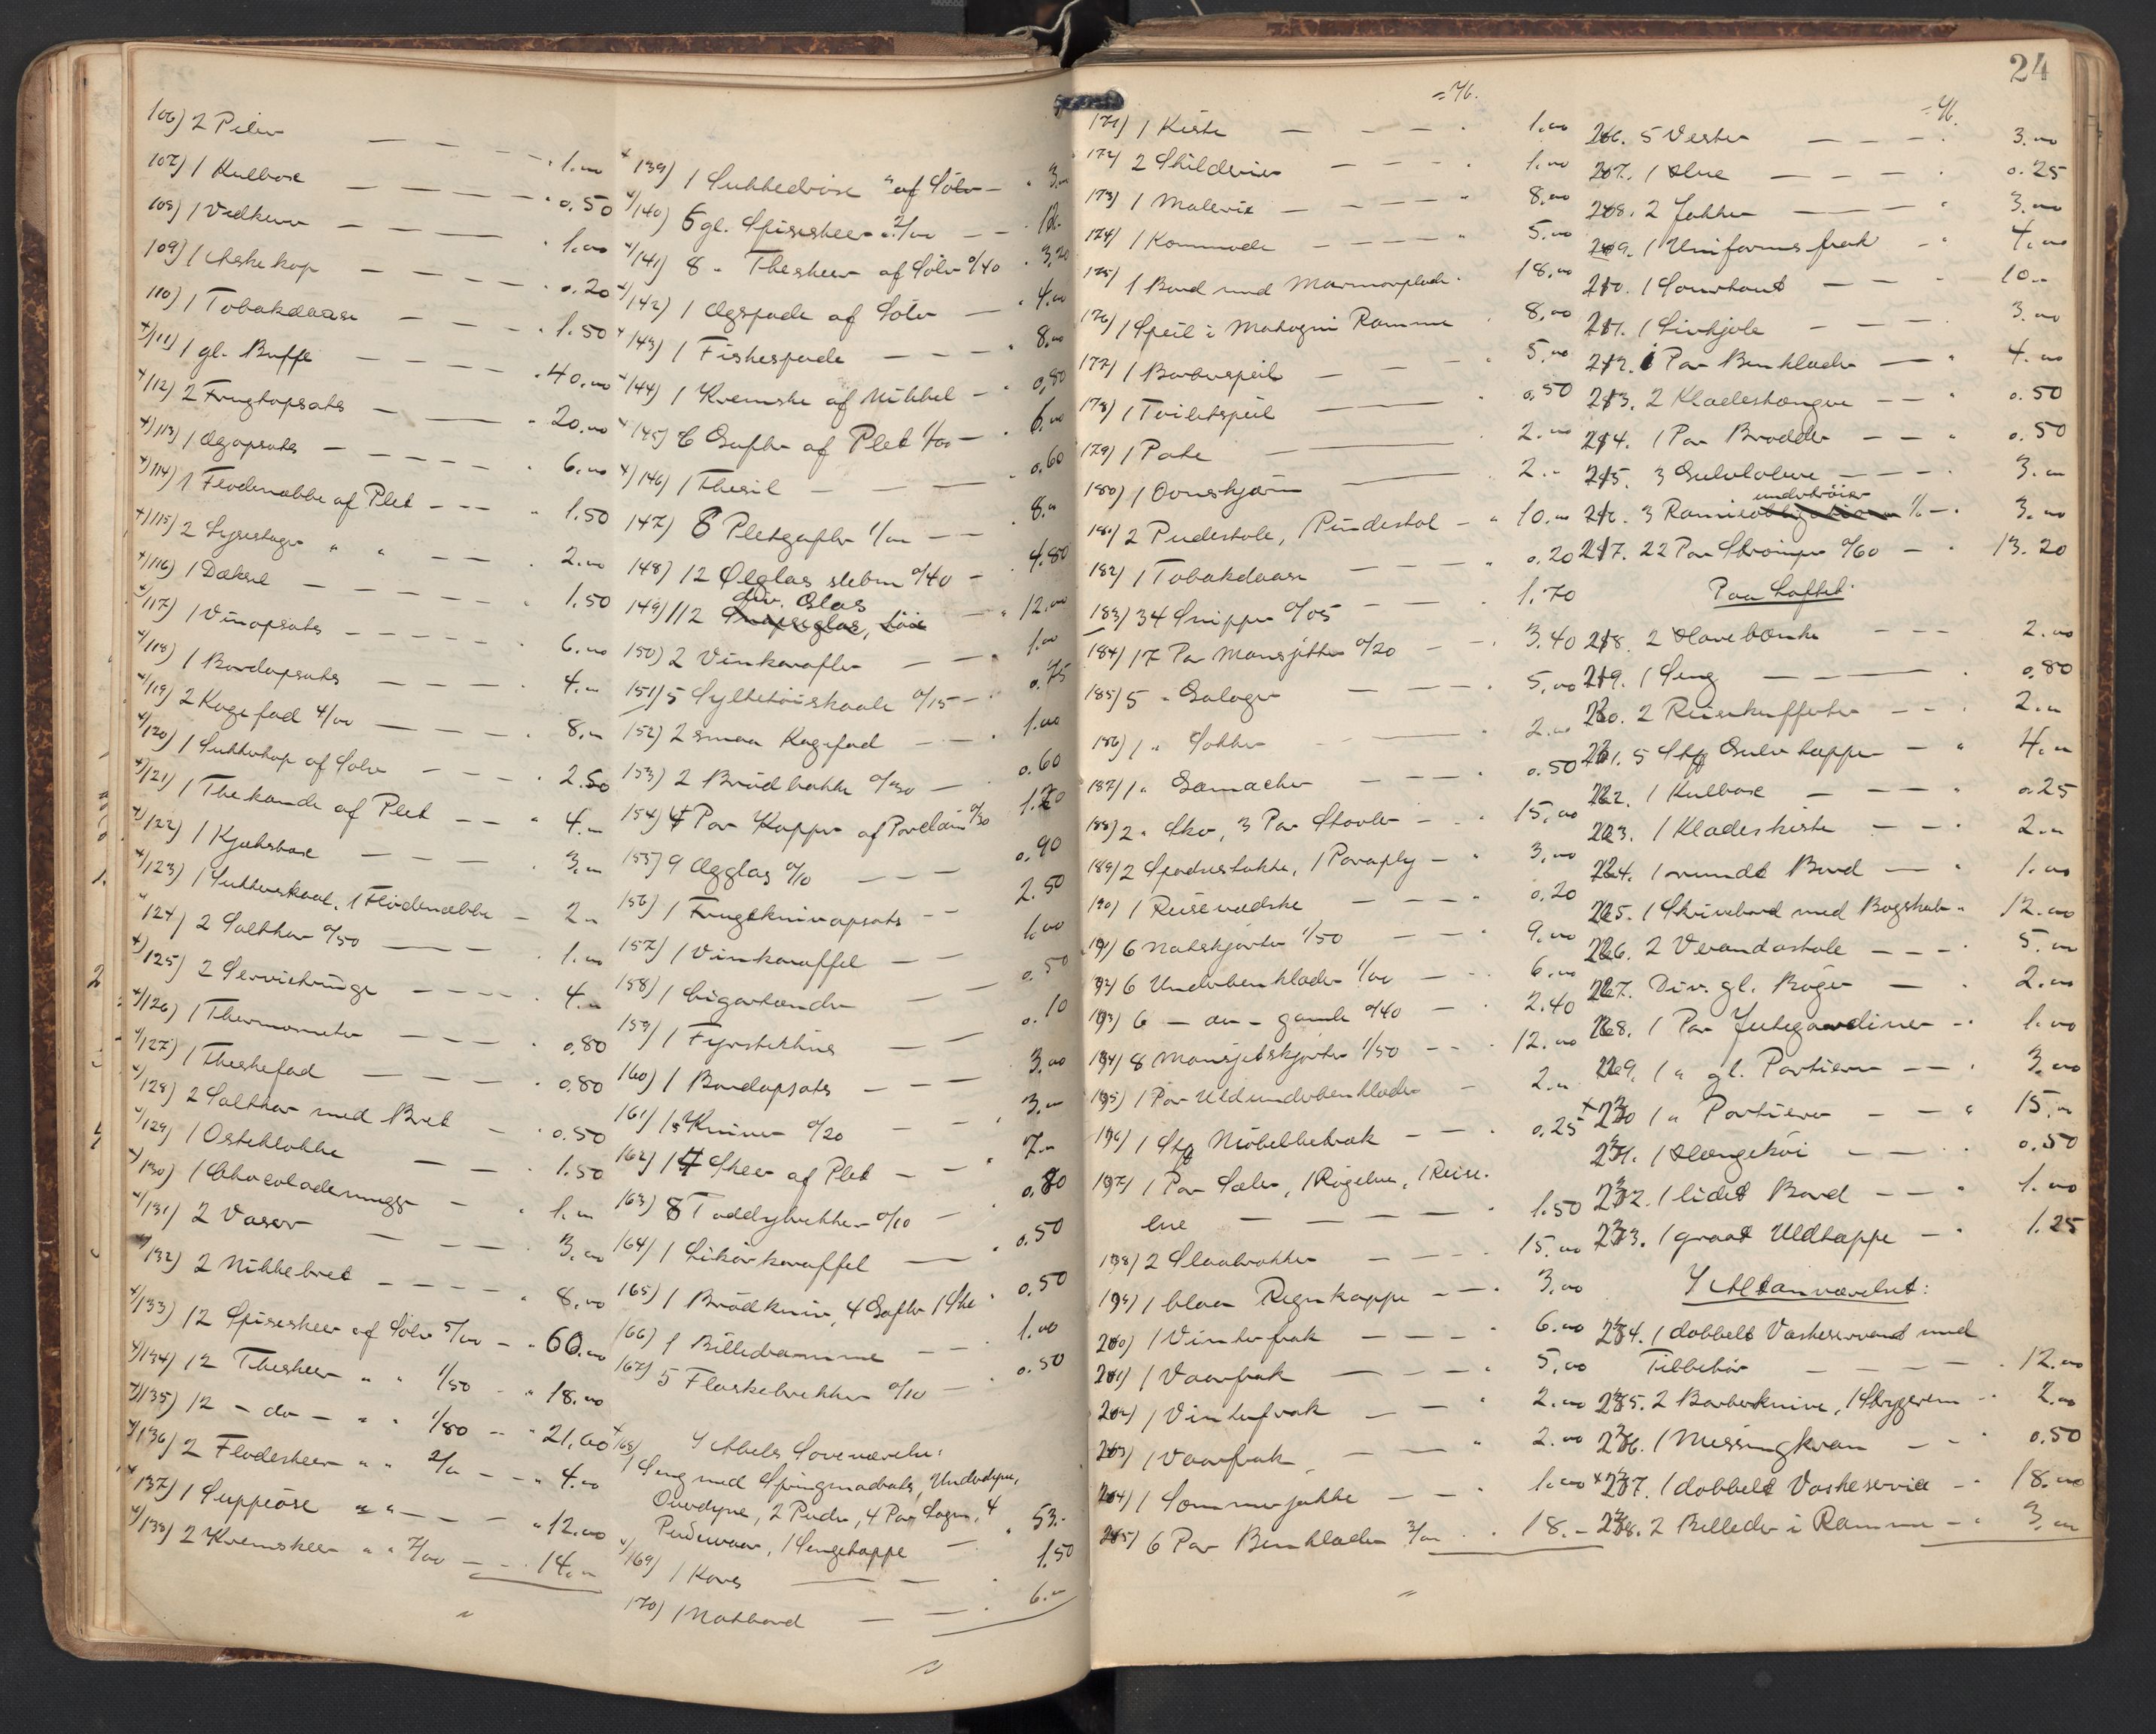 106) 2 Piber — — — 1.00
107) 1 Kulboxe — — — 0.50
108) 1 Vedkurv — — — 1.00
109) 1 Askekop — — — 0.20
110) 1 Tobaksdaase — — — 1.50
+/111) 1 gl. Buffe — — — 40.00
+/112) 2 Frugtopsats — — 20.00
+/113) 1 Ægopsats — — — 6.00
+/114) 1 Flødenæbbe af Plet — — 1.50
+/115) 2 Lysestager " " — — 2.00
+/116) 1 Dæksel — — — 1.50
+/117) 1 Vinopsats — — — 6.00
+/118) 1 Bordopsats — — — 4.00
+/119) 2 Kagefad 4/00 — — 8.00
+/120) 1 Sukkerkop af Sølv — — 2.50
+/121) 1 Thekande af Plet — — 4.00
+/122) 1 Kjæksboxe — — — 3.00
+/123) 1 Sukkerskaal, 1 Flødenæbbe — 2.00
+/124) 2 Saltkar 0/50 — — 1.00
+/125) 2 Servietringe — — — 4.00
+/126) 1 Thermometer — — — 0.80
+/127) 1 Theskefad — — — 0.80
+/128) 2 Saltkar med Bret — 0.50
+/129) 1 Osteklokke — — 1.50
+/130) 1 Chocolademugge — 1.00
+/131) 2 Vaser — — — 3.00
+/132) 2 Nikkelbret — — — 8.00
+/133) 12 Spiseskeer af Sølv 5/00 — 60.00
+/134) 12 Theskeer " " 1/50 — 18.00
+/135) 12 — do — " " 1/80 — 21.60
+/136) 2 Flødeskeer " " 2/00 — 4.00
+/137) 1 Suppeøse " " — — 12.00
+/138) 2 Kremskeer " " 7/00 — 14.00
+ 139) 1 Sukkedrøse " af Sølv — 3.00
+/140) 6 gl. Spiseskeer " 2/00 — 12.
+/141) 8 " Theskeer af Sølv 0/40 3.20
+/142) 1 Ægspade af Sølv — 4.00
+/143) 1 Fiskespade — — — 8.00
+/144) 1 Kremske af Nikkel — 0.80
+/145) 6 Gafler af Plet 1/00 — 6.00
+/146) 1 Thesil — — — 0.60
147) 8 Pletgafler 1/00 — — 8.00
148) 12 Ølglas slebne 0/40 — 4.80
div. Glas
149) 112 Snapseglas, — 12.00
150) 2 Vinkarafler — — 1.00
151) 5 Syltetøiskaale 0/15 — 0.75
152) 2 smaa Kagefad — — 1.00
153) 2 Brødbakke 0/30 — 0.60
154) 4 Par Kopper af Porcelain 0/30 1.20
155) 9 Ægglas 0/10 — — — 0.90
156) 1 Frugtknivopsats — — 2.50
157) 1 Vinkaraffel — — 1.00
158) 1 Cigartænder — — 0.50
159) 1 Fyrstikhus — — 0.10
160) 1 Bordopsats — — — 3.00
161) 15 Knive 0/20 — — 3.00
162) 14 Skeer af Plet — — 7.00
163) 8 Toddybrikker 0/10 — 0.80
164) 1 Likørkaraffel — — 0.50
165) 1 Brødkniv, 4 Gafler 1 Ske 0.50
166) 1 Billedramme — — 1.00
167) 5 Flaskebrikker 0/10 — 0.50
I Abels Soveværelse:
+ 168) 1 Seng med Springmadrats, Underdyne,
Overdyne, 2 Puder, 4 Par Lagen, 4
Pudevaar, 1 Sengetæppe — 53.-
+/169) 1 Kors — — 1.50
170) 1 Natbord — — 6.-
24
= 46.
171) 1 Kiste — — — 1.00
172) 2 Skilderier — — — 1.00
173) 1 Malerie — — — 8.00
174) 1 Kommode — — — 5.00
175) 1 Bord med Marmorplade 18.00
176) 1 Speil i Mahogni Ramme 8.00
177) 1 Barberspeil — — 5.00
178) 1 Toiletspeil — — 0.50
179) 1 Pote — — 2.00
180) 1 Ovnskjærm — — 2.-
181) 2 Pudestole, 1 Pindestol — 10.00
182) 1 Tobakdaase — — — 0.20
183) 34 Snipper 0/05 — — 1.70
184) 17 Par Mansjetter 0/20 — 3.40
185) 5 " Galoger — — — 5.00
186) 1 " Sokker — — 2.00
187) 1 " Gamacher — — — 0.50
188) 2 " Sko, 3 Par Støvler — 15.00
189) 2 Spadserstokke, 1 Paraply — 3.00
190) 1 Reisevædske — — — 0.20
191) 6 Natskjorter 1/50 — — 9.00
192) 6 Underbenklæder 1/00 — 6.00
193) 6 — do — gamle 0/40 — 2.40
194) 8 Mansjetskjorter 1/50 — — 12.00
195) 1 Par Uldunderbenklæder — 2.00
196) 1 Stk Møbelbetræk — — 0.25
197) 1 Par Sæler, 1 Røgelue, 1 Reise-
lue — — — — 1.50
198) 2 Slaabrokker — — — 15.00
199) 1 blaa Regnkappe — — 3.00
200) 1 Vinterfrak — — — 6.00
201) 1 Vaarfrak — — — 5.00
202) 1 Vinterfrak — — 2.00
203) 1 Vaarfrak — — 2.00
204) 1 Sommerjakke — — 1.00
205) 6 Par Benklæder 3/00 18.-
= 46.
206. 5 Vester — — — 3.00
207. 1 Hue — — — 0.25
208. 2 Jakker — — — 3.00
209. 1 Uniformsfrak — 4.00
210. 1 Sourtout — — 10.-
211. 1 Livkjole — — — 3.00
212. 1 Par Benklæder — 4.00
213. 2 Klædeshænger — — 0.50
214. 1 Par Brodder — — 0.50
215. 3 Gulvløbere — — — 3.00
undertrøier
216. 3 Ramie 1/- — 3.00
217. 22 Par Strømper 0/60 — 13.20
Paa Loftet.
218. 2 Havebænke — — — 2.00
219. 1 Seng — — — 0.80
220. 2 Reisekufferter — — 2.00
221. 5 Stk Gulvtæpper — 4.00
222. 1 Kulboxe — — — 0.25
223. 1 Klædeskiste — — 2.00
224. 1 rundt Bord — — 1.00
225. 1 Skrivebord med Bogskab 12.00
226. 2 Verandastole — — — 5.00
227. Div. gl. Bøger — — 2.00
228. 1 Par Jutegardiner — 1.00
229. 1 " gl. Portierer — — 3.00
+ 230 1 " Portierer — — 15.00
231. 1 Hængekøi — — 0.50
232. 1 lidet Bord — — 1.00
233. 1 graat Uldtæppe — 1.25
I Altanværelset:
234. 1 dobbelt Vaskeservant med
Tilbehør — — — — 12.00
235. 2 Barberknive, 1 Strygerem — 2.00
236. 1 Messingkran — — 0.50
+ 237. 1 dobbelt Vaskeservice — 18.00
238. 2 Billeder i Ramme — 3.00